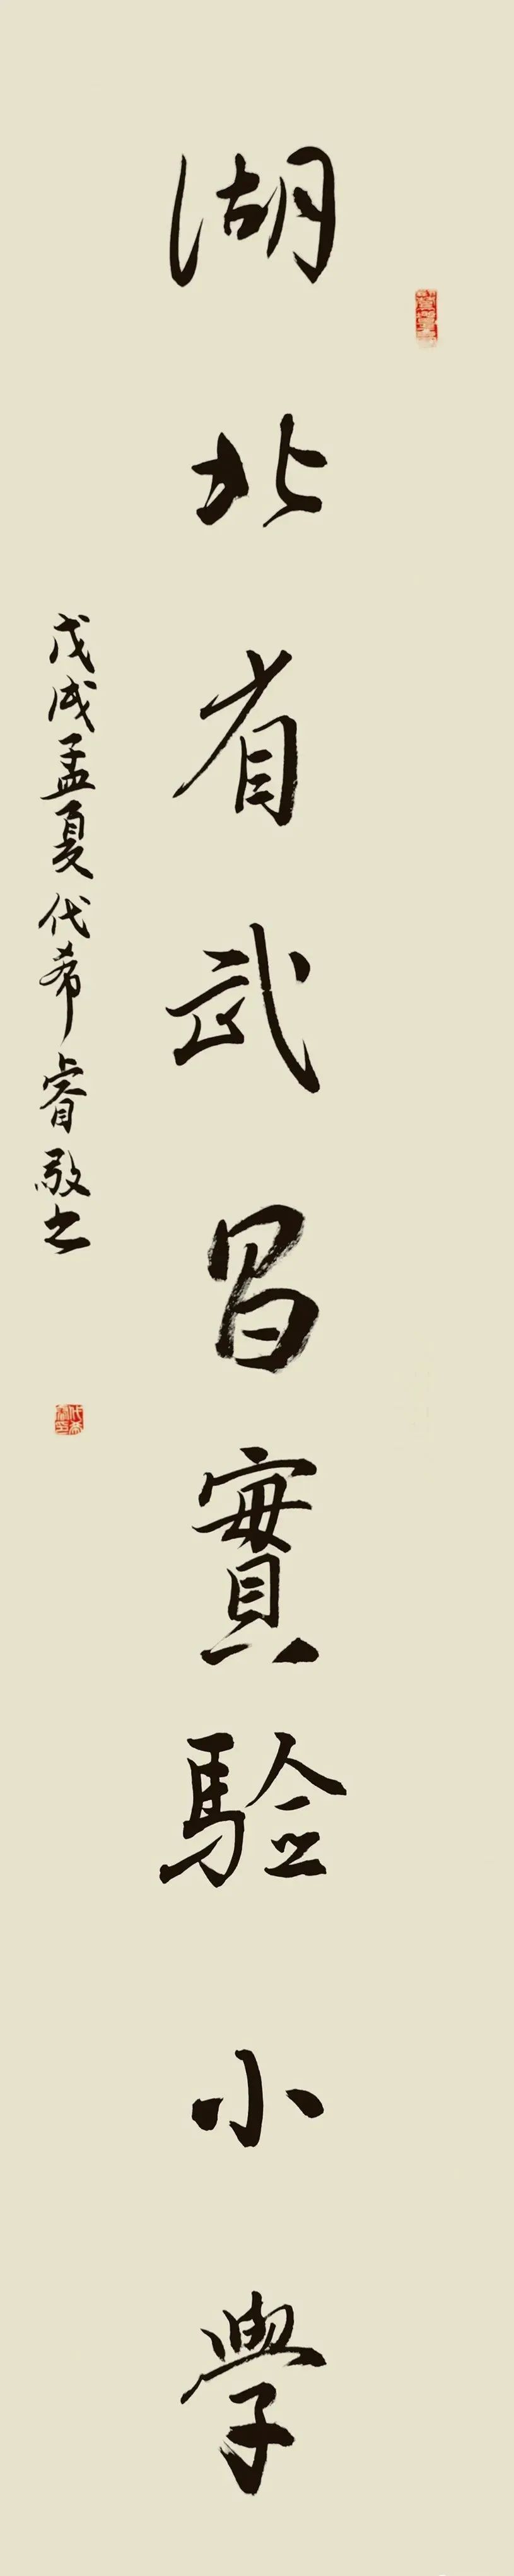 湖北省武昌實驗小學
戊戌孟夏代希睿敬书